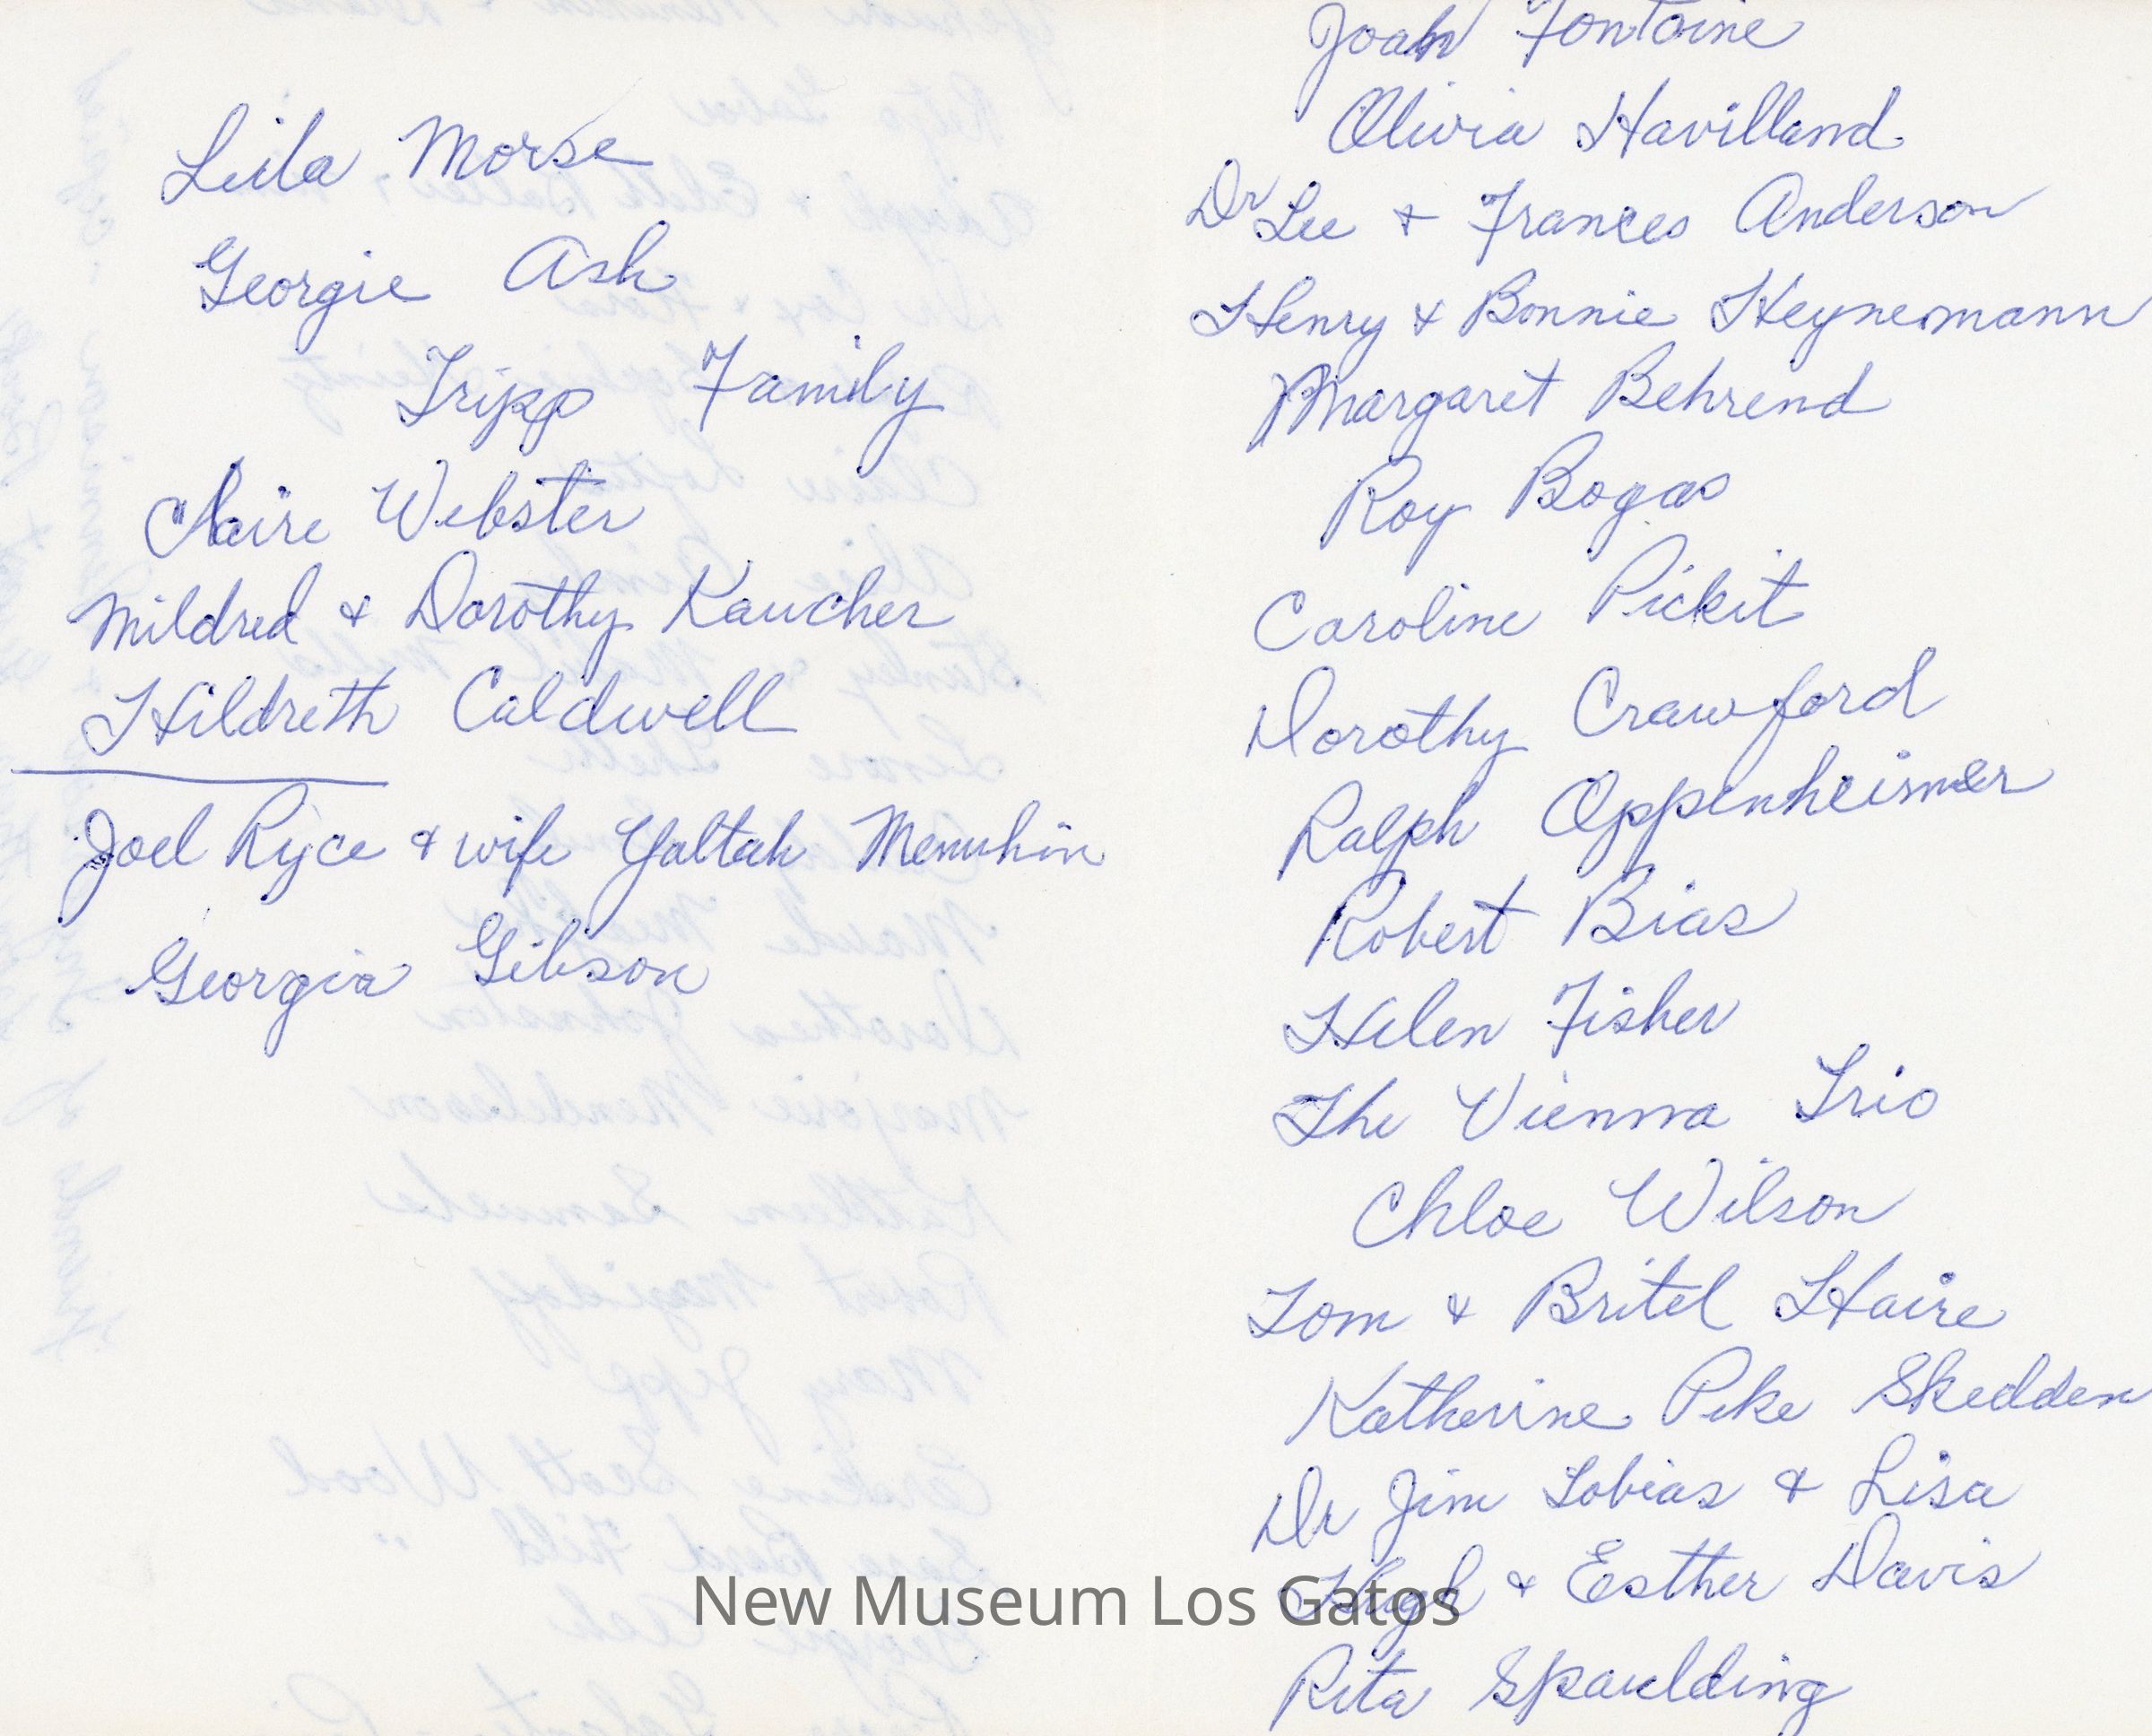 Leila Morse
Georgie Ash
Tripp Family
Claire Webster
Mildred & Dorothy Kaucher
Hildreth Caldwell
Joel Ryce & wife Yaltah Menuhin
Georgia Gibson
Joan Fontaine
Olivia Havilland
Dr Lee & Frances Anderson
Henry & Bonnie Heynemann
Margaret Behrend
Roy Bogas
Caroline Pickit
Dorothy Crawford
Ralph Oppenheimer
Robert Bias
Helen Fisher
The Vienna Trio
Chloe Wilson
Tom & Britel Haire
Katherine Pike Skedden
Dr Jim Tobias & Lisa
Hugh & Esther Davis
Rita Spaulding
New Museum Los Gatos